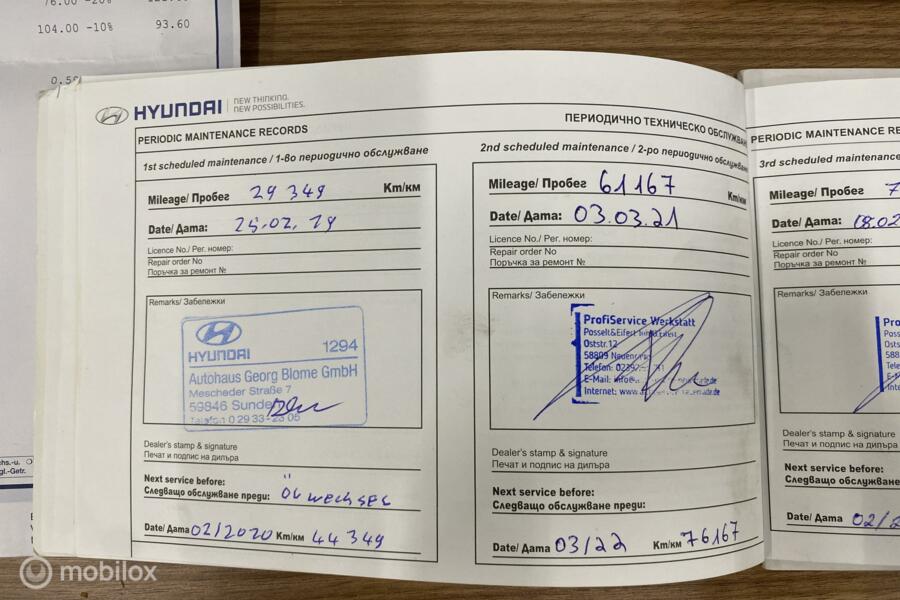 76.00 -20%
104.00 -10% 93.60
HYUNDAI NEW THINKING.
NEW POSSIBILITIES.
PERIODIC MAINTENANCE RECORDS
ПЕРИОДИЧНО ТЕХНИЧЕСКО
1st scheduled maintenance / 1-во периодично обслужване
Mileage/ Пробег 29 349 Km/км
Date/ Дата: 25.02.19
Licence No./ Рег. номер:
Repair order No
Поръчка за ремонт №
Remarks/ Забележки
HYUNDAI 1294
Autohaus Georg Blome GmbH
Mescheder Straße 7
59846
Telefon 0 29 33 - 23 05
Dealer's stamp & signature
Печат и подпис на дилъра
Next service before:
Следващо обслужване преди: Ölwechsel
Date/ Дата 02/2020 Km/км 44 349
2nd scheduled maintenance / 2-ро периодично обслужване
Mileage/ Пробег 61167 Km/км
Date/ Дата: 03.03.21
Licence No./ Рег. номер:
Repair order No
Поръчка за ремонт №
Remarks/ Забележки
ProfiService Werkstatt
Posselt&Eifert
Oststr.12
58809
Telefon:
E-Mail:
Internet:
Dealer's stamp & signature
Печат и подпис на дилъра
Next service before:
Следващо обслужване преди:
Date/ Дата 03/22 Km/км 76167
PERIODIC MAINTENANCE
3rd scheduled maintenance
Mileage/ Пробег 7
Date/ Дата: 18.02
Licence No./ Рег. номер:
Repair order No
Поръчка за ремонт №
Remarks/ Забележки
Dealer's stamp & signature
Печат и подпис на дилъра
Next service before:
Следващо обслужване преди:
Date/ Дата 02/2
mobilox